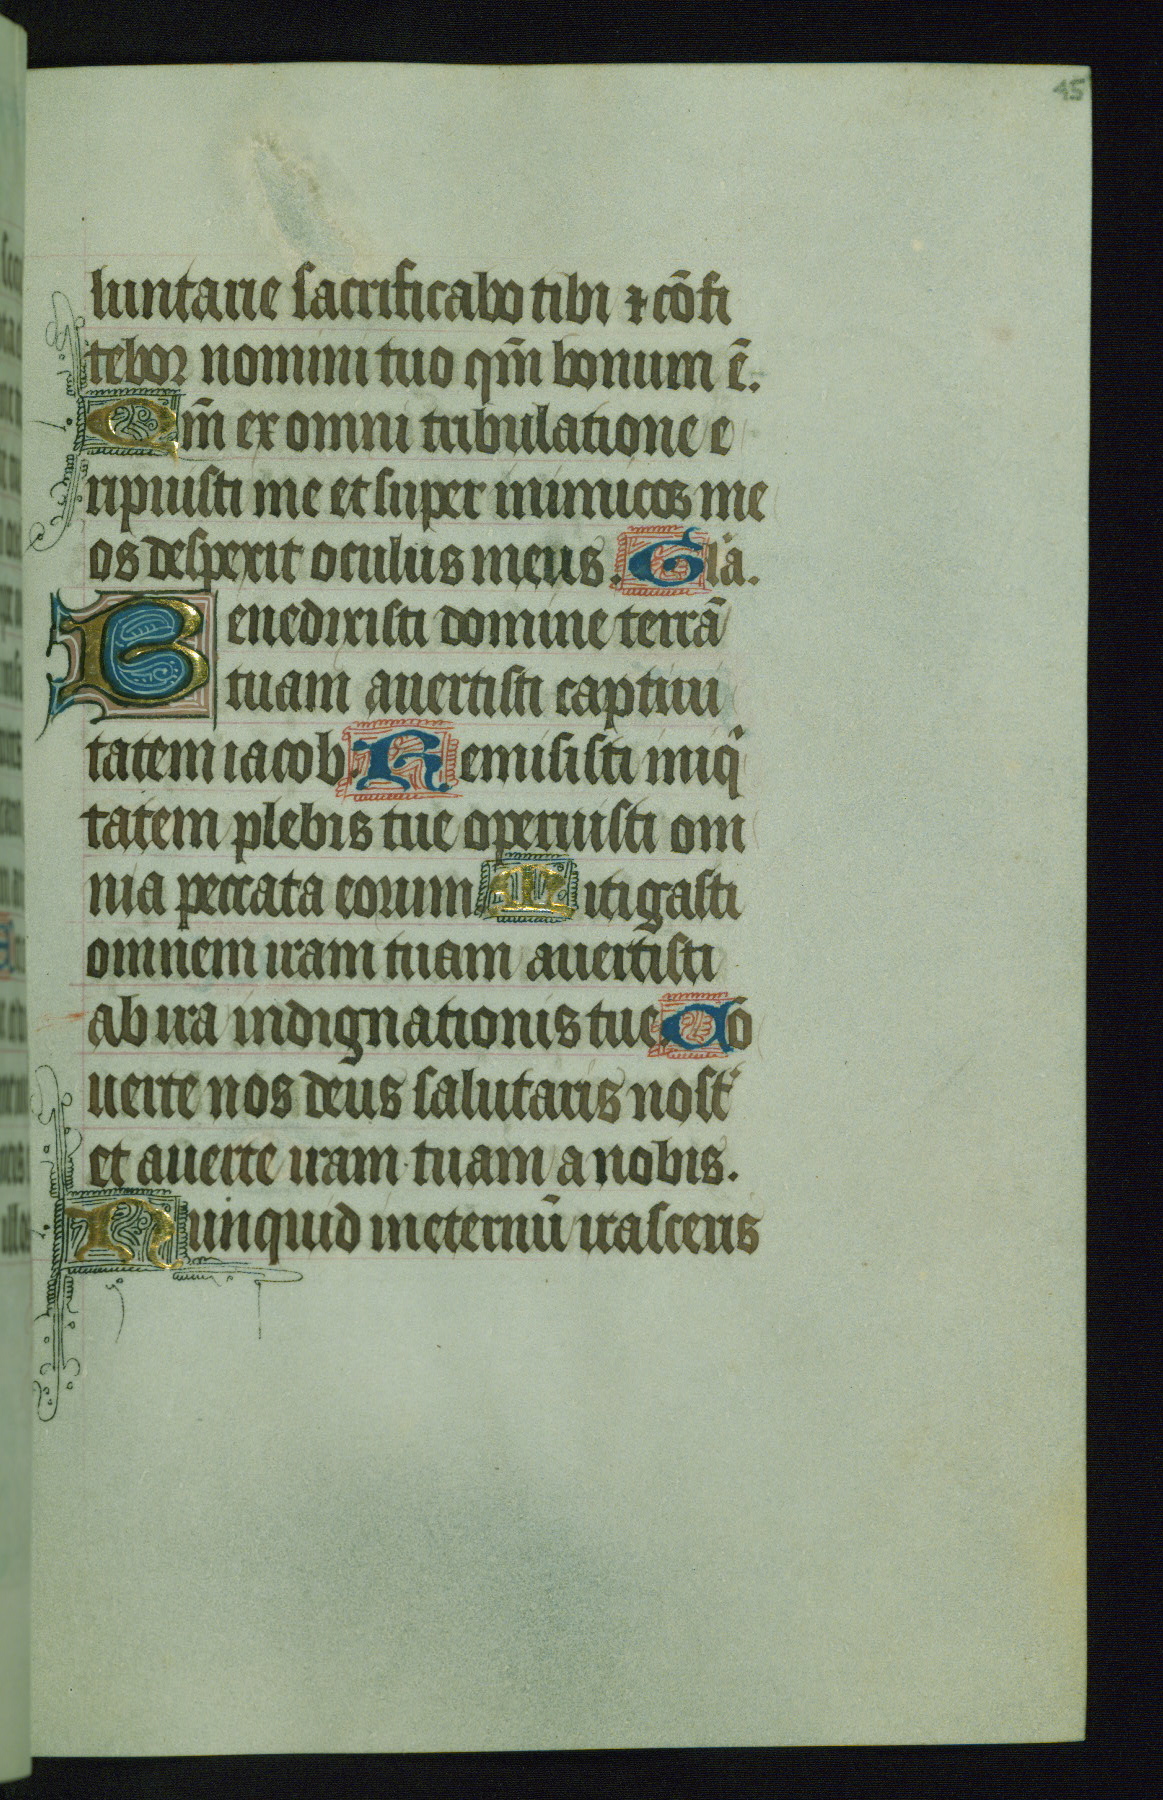 45
luntarie sacrificabo tibi ⁊ cōfi
tebor nomini tuo qm̄ bonum ē.
Qm̄ ex omni tribulatione e
ripuisti me et super inimicos me
os despexit oculus meus. Gl'a.
Benedixisti domine terrā
tuam auertisti captiui
tatem iacob. Remisisti iniqͥ
tatem plebis tue operuisti om
nia peccata eorum Mitigasti
omnem iram tuam auertisti
ab ira indignationis tue. Cō
uerte nos deus salutaris nost'
et auerte iram tuam a nobis.
Nunquid in eternū irasceris